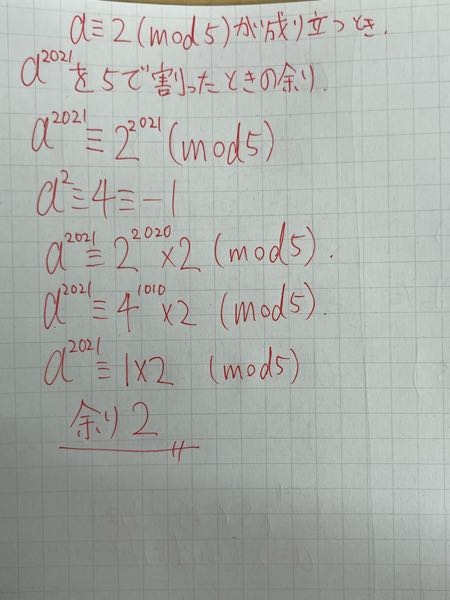 a≡2(mod5)が成り立つとき.
a²⁰²¹を5で割ったときの余り.
a²⁰²¹≡2²⁰²¹(mod5)
a²≡4≡-1
a²⁰²¹≡2²⁰²⁰×2(mod5).
a²⁰²¹≡4¹⁰¹⁰×2(mod5).
a²⁰²¹≡1×2(mod5)
余り2